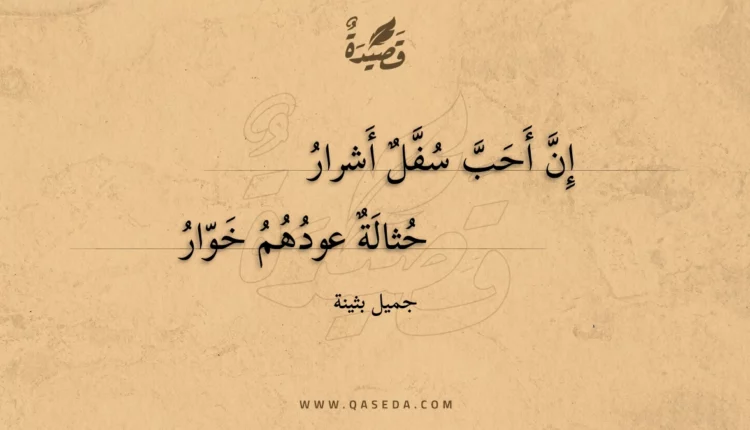 قَصِيْدَةٌ
إِنَّ أَحَبَّ سُفَّلٌ أَشرارُ
حُثالَةٌ عودُهُمُ خَوّارُ
جميل بثينة
WWW.QASEDA.COM